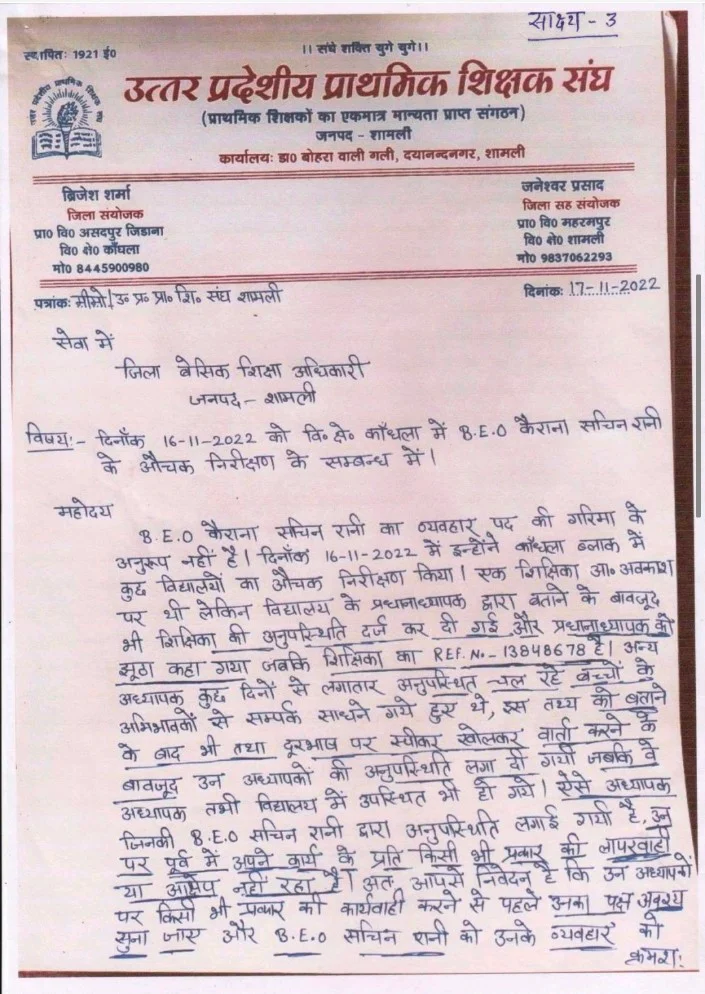 साक्ष्य - 3
स्थापित: 1921 ई0
।। संघे शक्ति युगे युगे।।
उत्तर प्रदेशीय प्राथमिक शिक्षक संघ
(प्राथमिक शिक्षकों का एकमात्र मान्यता प्राप्त संगठन)
जनपद - शामली
कार्यालय: डा0 बोहरा वाली गली, दयानन्दनगर, शामली
ब्रिजेश शर्मा
जिला संयोजक
प्रा0 वि0 असदपुर जिडाना
वि0 क्षे0 काँधला
मो0 8445900980
जनेश्वर प्रसाद
जिला सह संयोजक
प्रा0 वि0 महरमपुर
वि0 क्षे0 शामली
मो0 9837062293
पत्रांक: मीमो/उ० प्र० प्रा० शि० संघ शामली
दिनांक: 17-11-2022
सेवा में
जिला बेसिक शिक्षा अधिकारी
जनपद - शामली
विषय:- दिनाँक 16-11-2022 को वि० क्षे० काँधला में B.E.O कैराना सचिन रानी
के औचक निरीक्षण के सम्बन्ध में।
महोदय
B.E.O कैराना सचिन रानी का व्यवहार पद की गरिमा के
अनुरूप नहीं है। दिनाँक 16-11-2022 में इन्होंने काँधला ब्लाक में
कुछ विद्यालयों का औचक निरीक्षण किया। एक शिक्षिका आ० अवकाश
पर थी लेकिन विद्यालय के प्रधानाध्यापक द्वारा बताने के बावजूद
भी शिक्षिका की अनुपस्थिति दर्ज कर दी गई और प्रधानाध्यापक को
झूठा कहा गया जबकि शिक्षिका का REF. No.- 13848678 है। अन्य
अध्यापक कुछ दिनों से लगातार अनुपस्थित चल रहे बच्चों के
अभिभावकों से सम्पर्क साधने गये हुए थे, इस तथ्य को बताने
के बाद भी तथा दूरभाष पर स्पीकर खोलकर वार्ता करने के
बावजूद उन अध्यापकों की अनुपस्थिति लगा दी गयी जबकि वे
अध्यापक तभी विद्यालय में उपस्थित भी हो गये। ऐसे अध्यापक
जिनकी B.E.O सचिन रानी द्वारा अनुपस्थिति लगाई गयी है, उन
पर पूर्व में अपने कार्य के प्रति किसी भी प्रकार की लापरवाही
या आक्षेप नहीं रहा है। अतः आपसे निवेदन है कि उन अध्यापकों
पर किसी भी प्रकार की कार्यवाही करने से पहले उनका पक्ष अवश्य
सुना जाए और B.E.O सचिन रानी को उनके व्यवहार को
क्रमशः